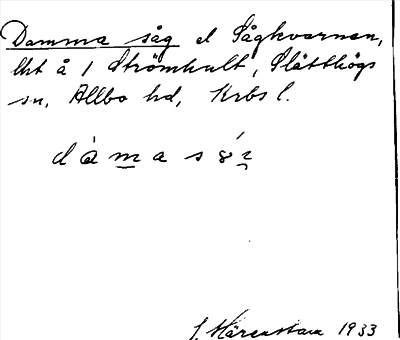 Damma såg el Sågkvarnen,
lht å 1 Strömhult, Slätthögs
sn, Allbo hd, Krbs l.
dàmasó̵
Härenstam 1933